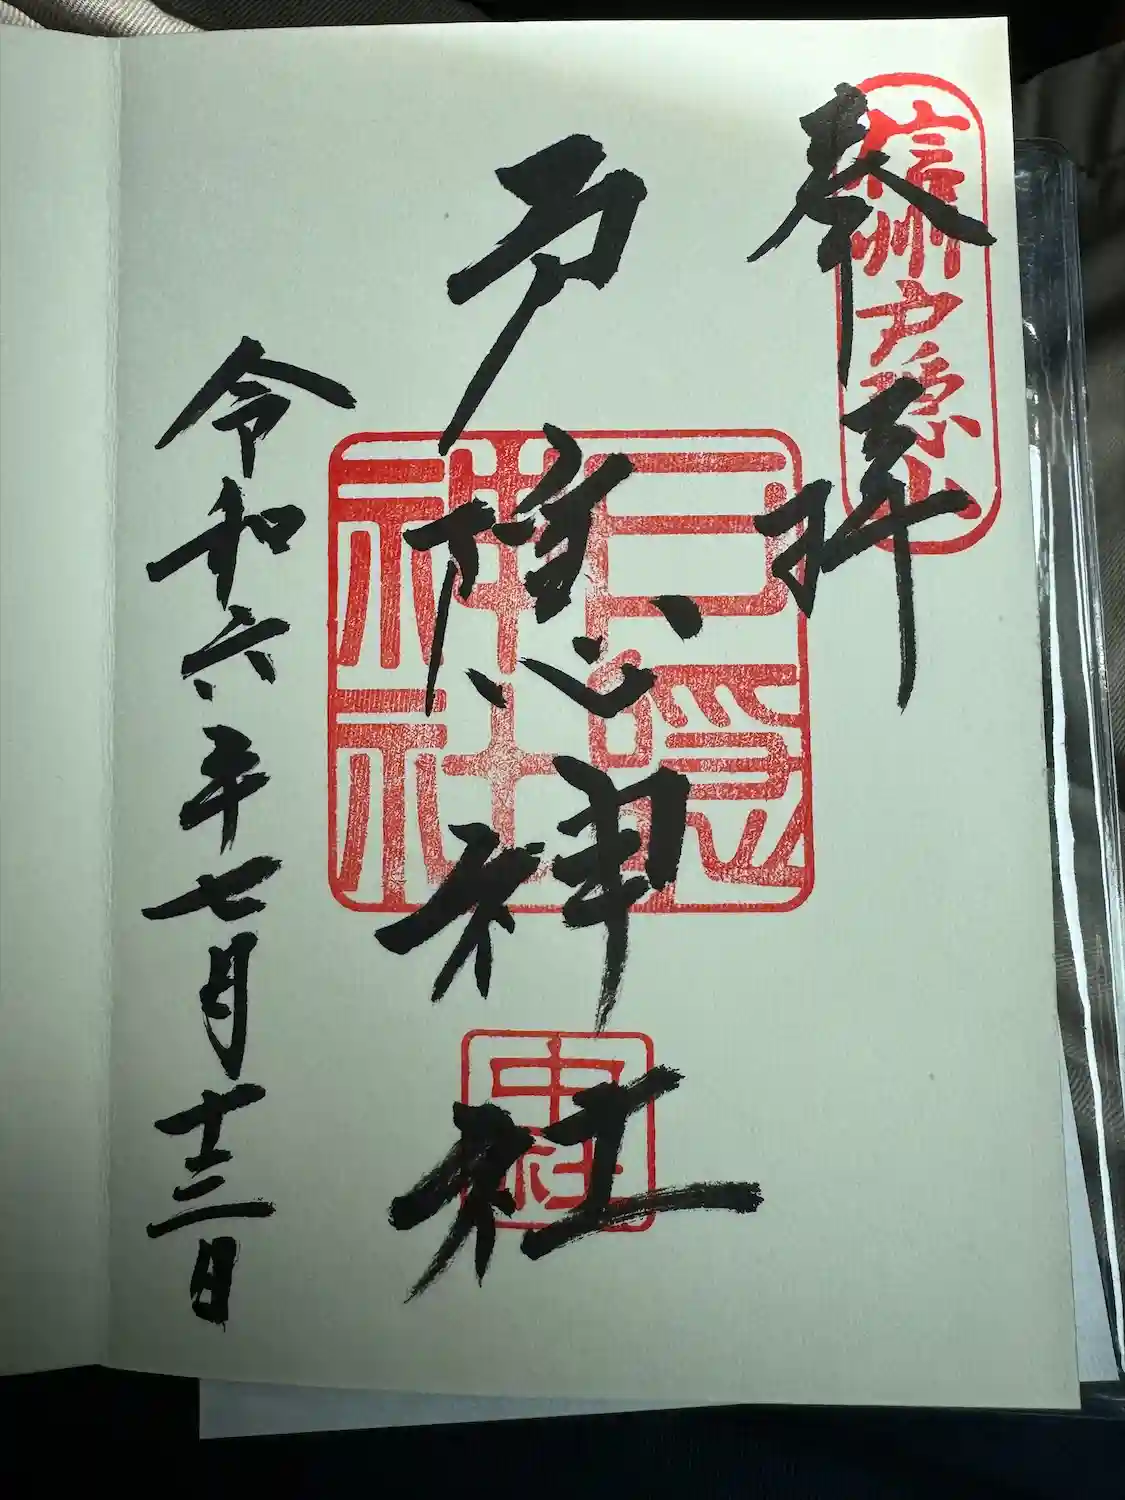 奉拝
信州戸隠山
戸隠神社
戸隠神社
中社
令和六年七月十二日